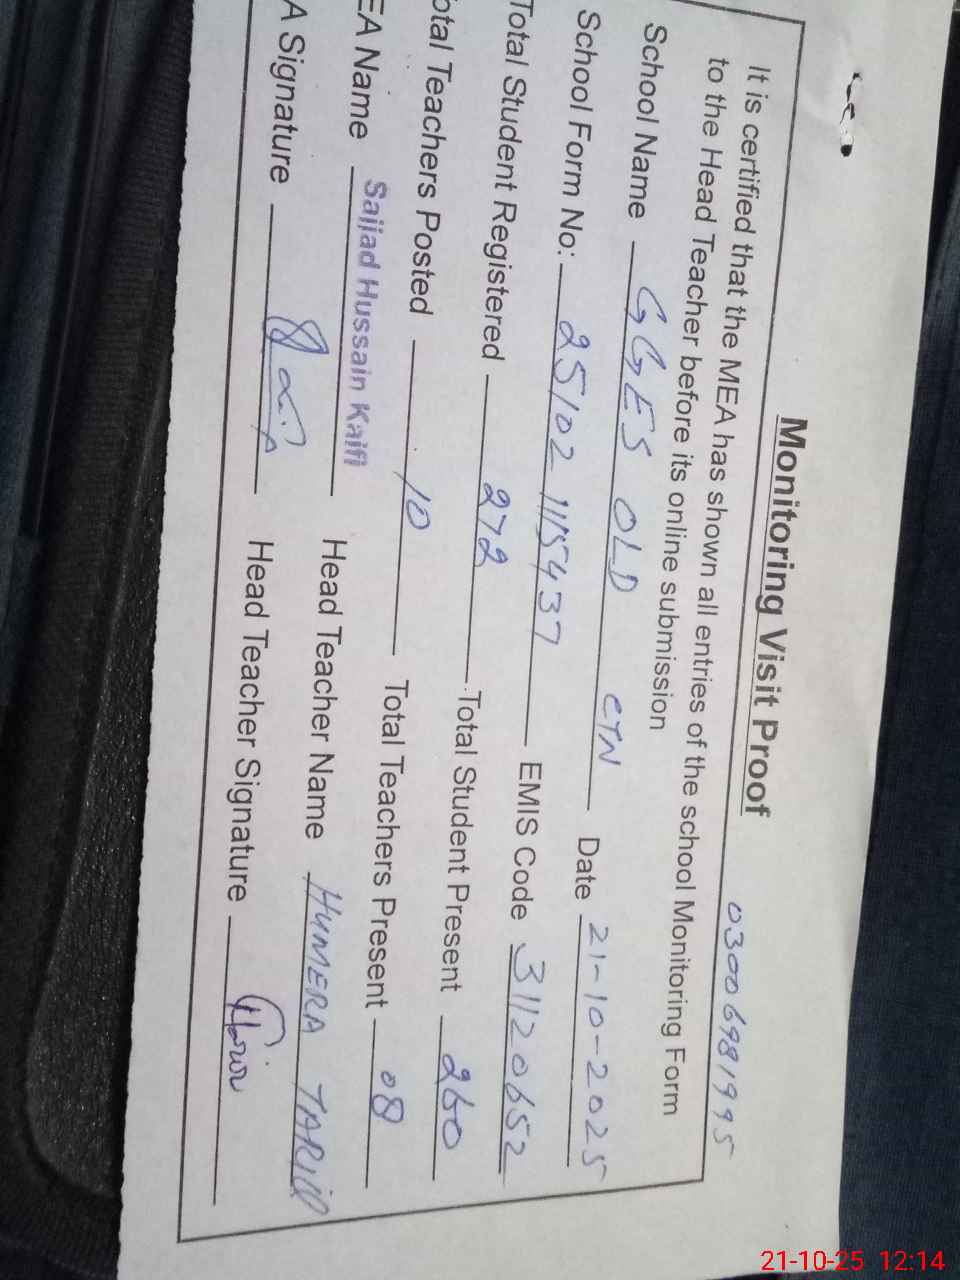 Monitoring Visit Proof
03006981995
It is certified that the MEA has shown all entries of the school Monitoring Form
to the Head Teacher before its online submission
School Name GGES OLD CTN Date 21-10-2025
School Form No: 25102 1115437 EMIS Code 31120652
Total Student Registered 272 Total Student Present 260
otal Teachers Posted 10 Total Teachers Present 08
EA Name Sajjad Hussain Kaifi Head Teacher Name HUMERA TARIQ
A Signature Head Teacher Signature
21-10-25 12:14